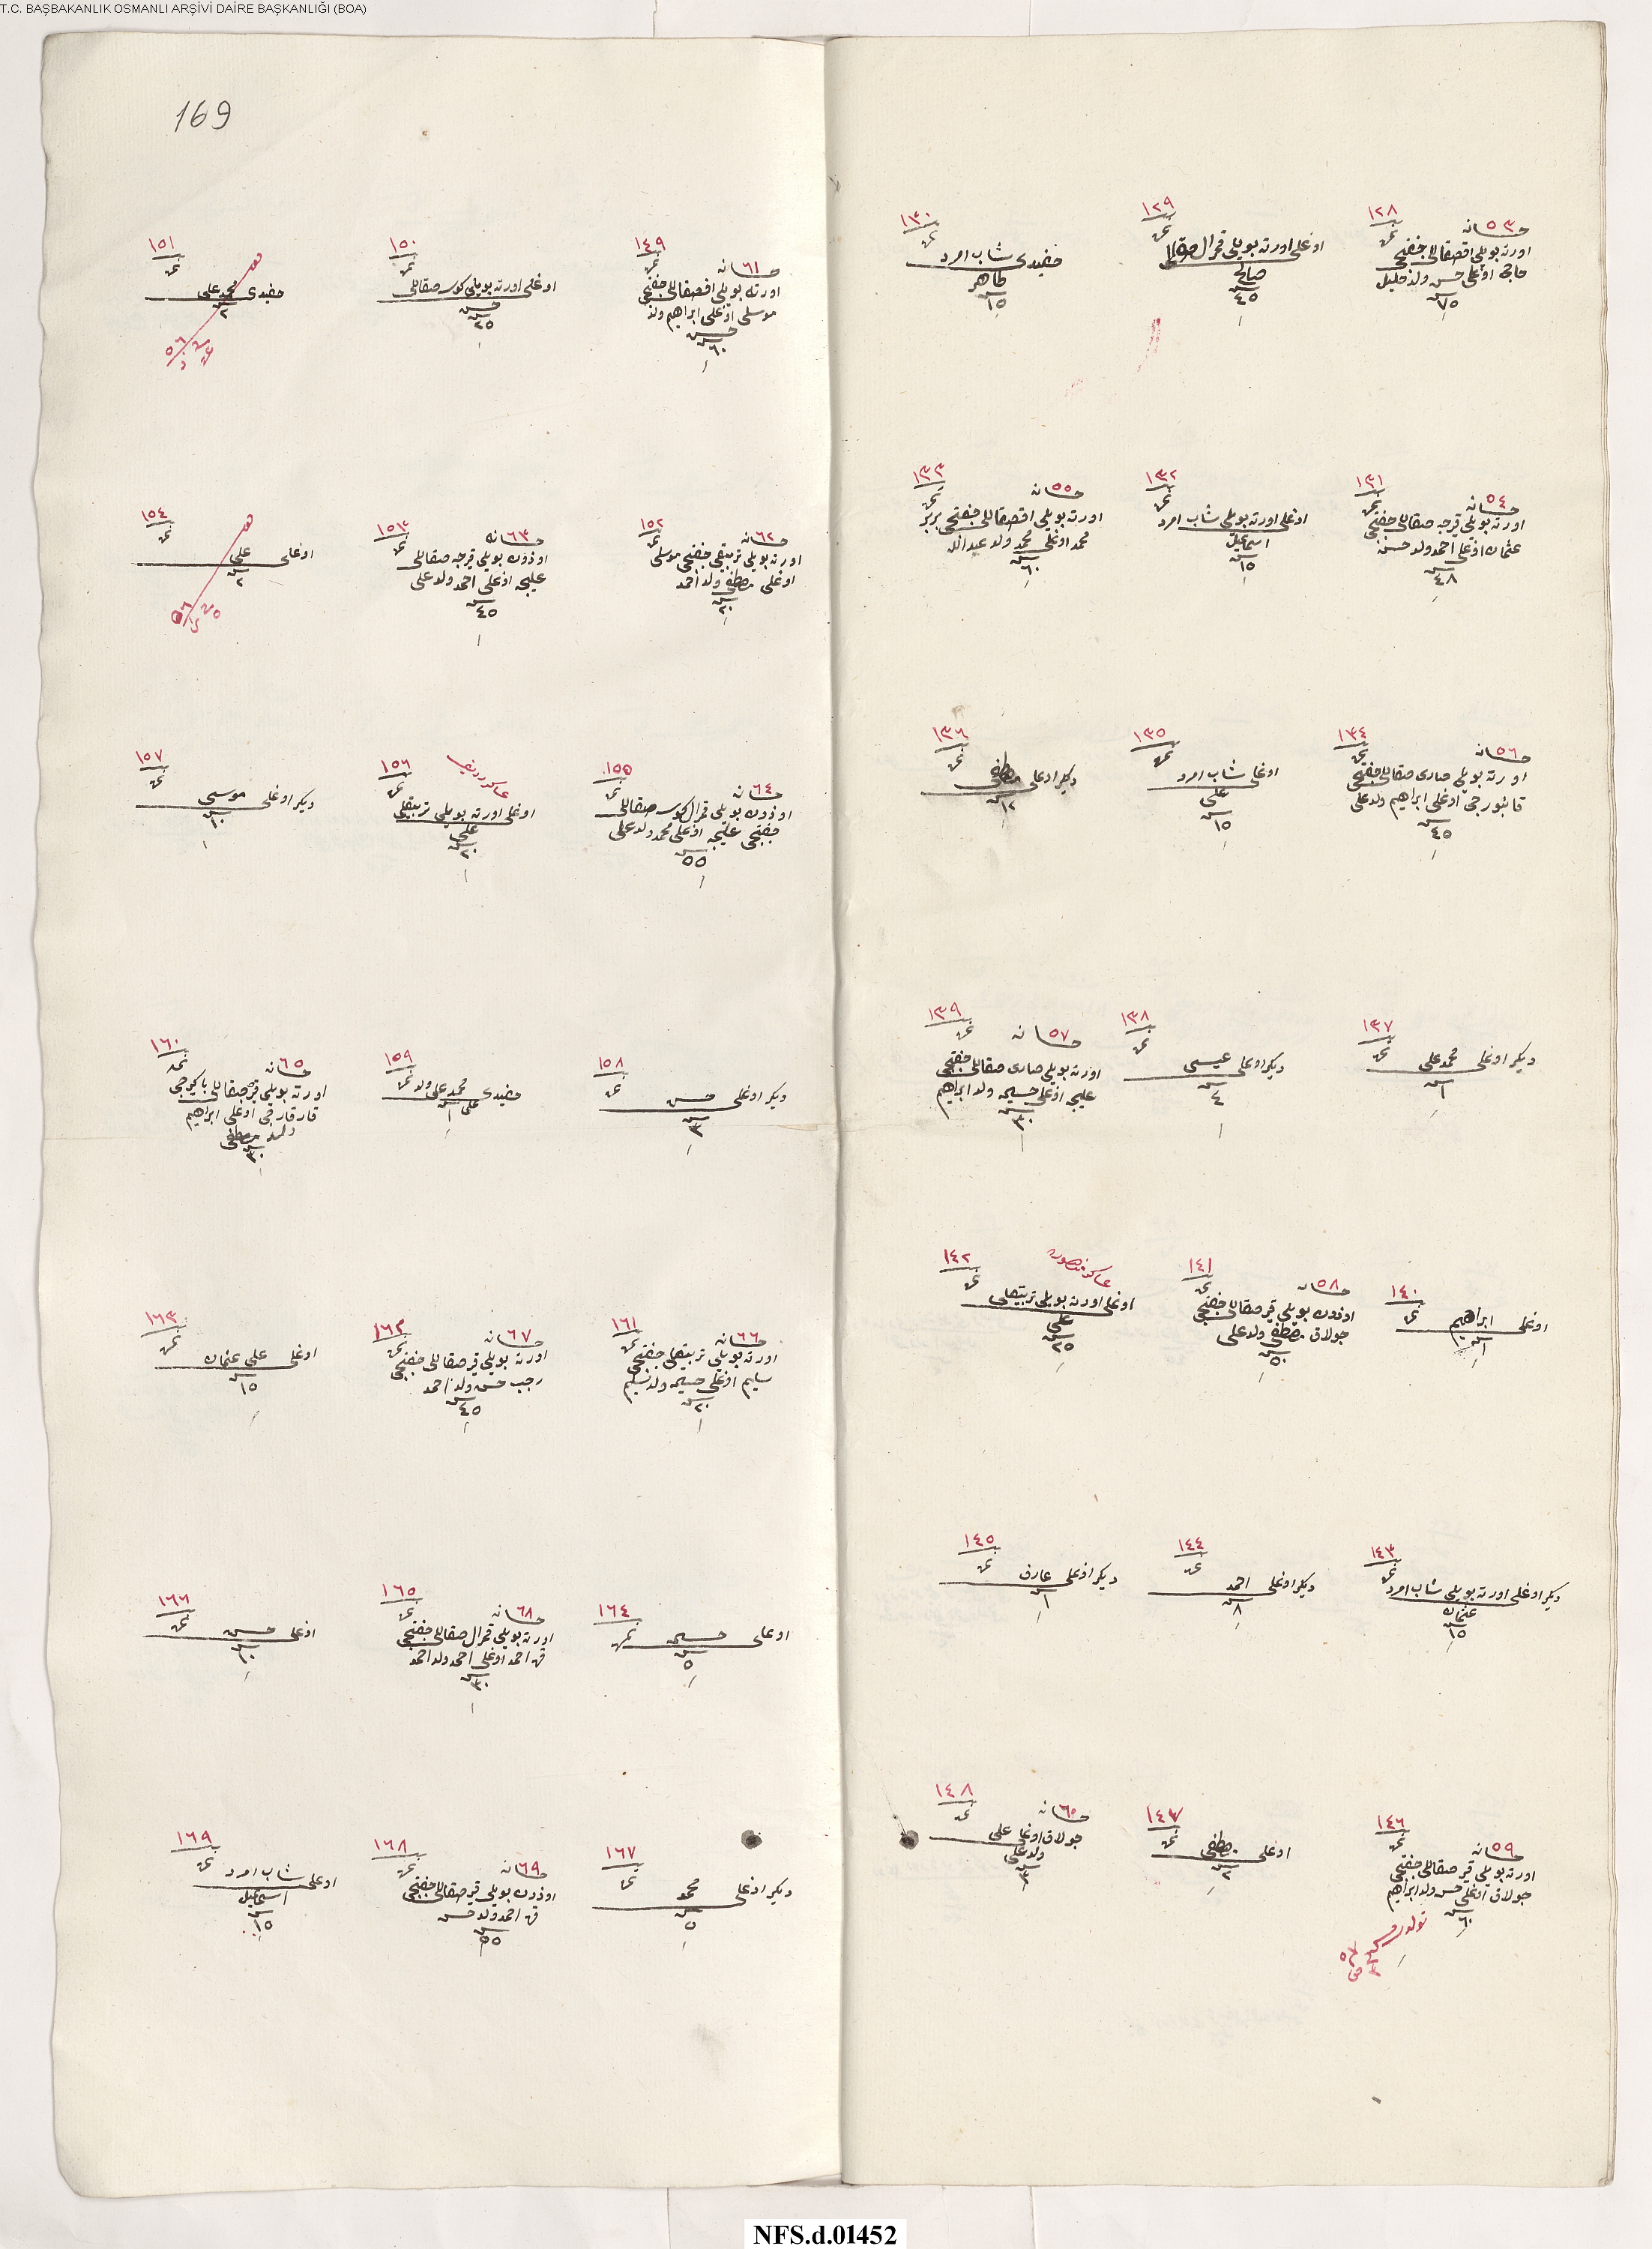 T.C. BAŞBAKANLIK OSMANLI ARŞİVİ DAİRE BAŞKANLIĞI (BOA)
خانه ٥٣
١٢٨
اورته بويلى اقصقاللى چفتجى
حاجى اوغلى حسن ولد خليل
سن ٧٥
١٢٩
اوغلى اورته بويلى قمرال صقاللى
صالح
سن ٤٥
١٣٠
حفيدى شاب امرد
طاهر
سن ١٥
خانه ٥٤
١٣١
اورته بويلى قرجه صقاللى چفتجى
عثمان اوغلى احمد ولد حسن
سن ٤٨
١٣٢
اوغلى اورته بويلى شاب امرد
اسماعيل
سن ١٥
خانه ٥٥
١٣٣
اورته بويلى اقصقاللى چفتجى
محمد اوغلى محمد ولد عبدالله
سن ٦٠
خانه ٥٦
١٣٤
اورته بويلى صارى صقاللى چفتجى
اوغلى ابراهيم ولد على
سن ٤٥
١٣٥
اوغلى شاب امرد
على
سن ١٥
١٣٦
ديكر اوغلى مصطفى
سن ١٢
١٣٧
ديكر اوغلى محمد على
سن ٦
١٣٨
ديكر اوغلى عيسى
سن ٤
خانه ٥٧
١٣٩
اورته بويلى صارى صقاللى چفتجى
عليجه اوغلى حسين ولد ابراهيم
سن ٣٠
١٤٠
اوغلى ابراهيم
سن ١
خانه ٥٨
١٤١
اوزون بويلى قير صقاللى چفتجى
چولاق مصطفى ولد على
سن ٥٠
١٤٢
عساكر منصوره
اوغلى اورته بويلى تربيقلى
على
سن ٢٥
١٤٣
ديكر اوغلى اورته بويلى شاب امرد
عثمان
سن ١٥
١٤٤
ديكر اوغلى احمد
سن ٨
١٤٥
ديكر اوغلى عارف
سن ١
خانه ٥٩
١٤٦
اورته بويلى قير صقاللى چفتجى
چولاق اوغلى حسن ولد ابراهيم
سن ٦٠
تولد
١٤٧
اوغلى مصطفى
سن ٢
خانه ٦٠
١٤٨
چولاق اوغلى على
ولد على
سن ٣
169
خانه ٦١
١٤٩
اورته بويلى اقصقاللى چفتجى
موسلى اوغلى ابراهيم ولد
حسن
سن ٦٠
١٥٠
اوغلى اورته بويلى كوسه صقاللى
حسن
سن ٢٥
١٥١
حفيدى محمد على
سن ٢
خانه ٦٢
١٥٢
اورته بويلى تربيقلى چفتجى موسلى
اوغلى مصطفى ولد احمد
سن ٢٠
خانه ٦٣
١٥٣
اوزون بويلى قرجه صقاللى
عليجه اوغلى احمد ولد على
سن ٤٥
١٥٤
اوغلى على
سن ٢
خانه ٦٤
١٥٥
اوزون بويلى قمرال كوسه صقاللى
چفتجى عليجه اوغلى محمد ولد على
سن ٥٥
١٥٦
اوغلى اورته بويلى تربيقلى
على
سن ٢٠
١٥٧
ديكر اوغلى موسى
سن ١٠
١٥٨
ديكر اوغلى حسن
سن ٣
١٥٩
حفيدى محمد على ولد
على سن ١
خانه ٦٥
١٦٠
اورته بويلى قير صقاللى
اوغلى ابراهيم
ولد مصطفى
سن ٣٠
خانه ٦٦
١٦١
اورته بويلى تربيقلى چفتجى
سليم اوغلى حسين ولد سليم
سن ٢٠
خانه ٦٧
١٦٢
اورته بويلى قير صقاللى چفتجى
رجب حسن ولد احمد
سن ٤٥
١٦٣
اوغلى على عثمان
سن ١٥
١٦٤
اوغلى حسين
سن ٥
خانه ٦٨
١٦٥
اورته بويلى قمرال صقاللى چفتجى
احمد اوغلى احمد ولد احمد
سن ٣٠
١٦٦
اوغلى حسن
سن ١٠
١٦٧
ديكر اوغلى محمد
سن ٥
خانه ٦٩
١٦٨
اوزون بويلى قير صقاللى چفتجى
احمد ولد حسن
سن ٥٥
١٦٩
اوغلى شاب امرد
اسماعيل
سن ١٥
NFS.d.01452